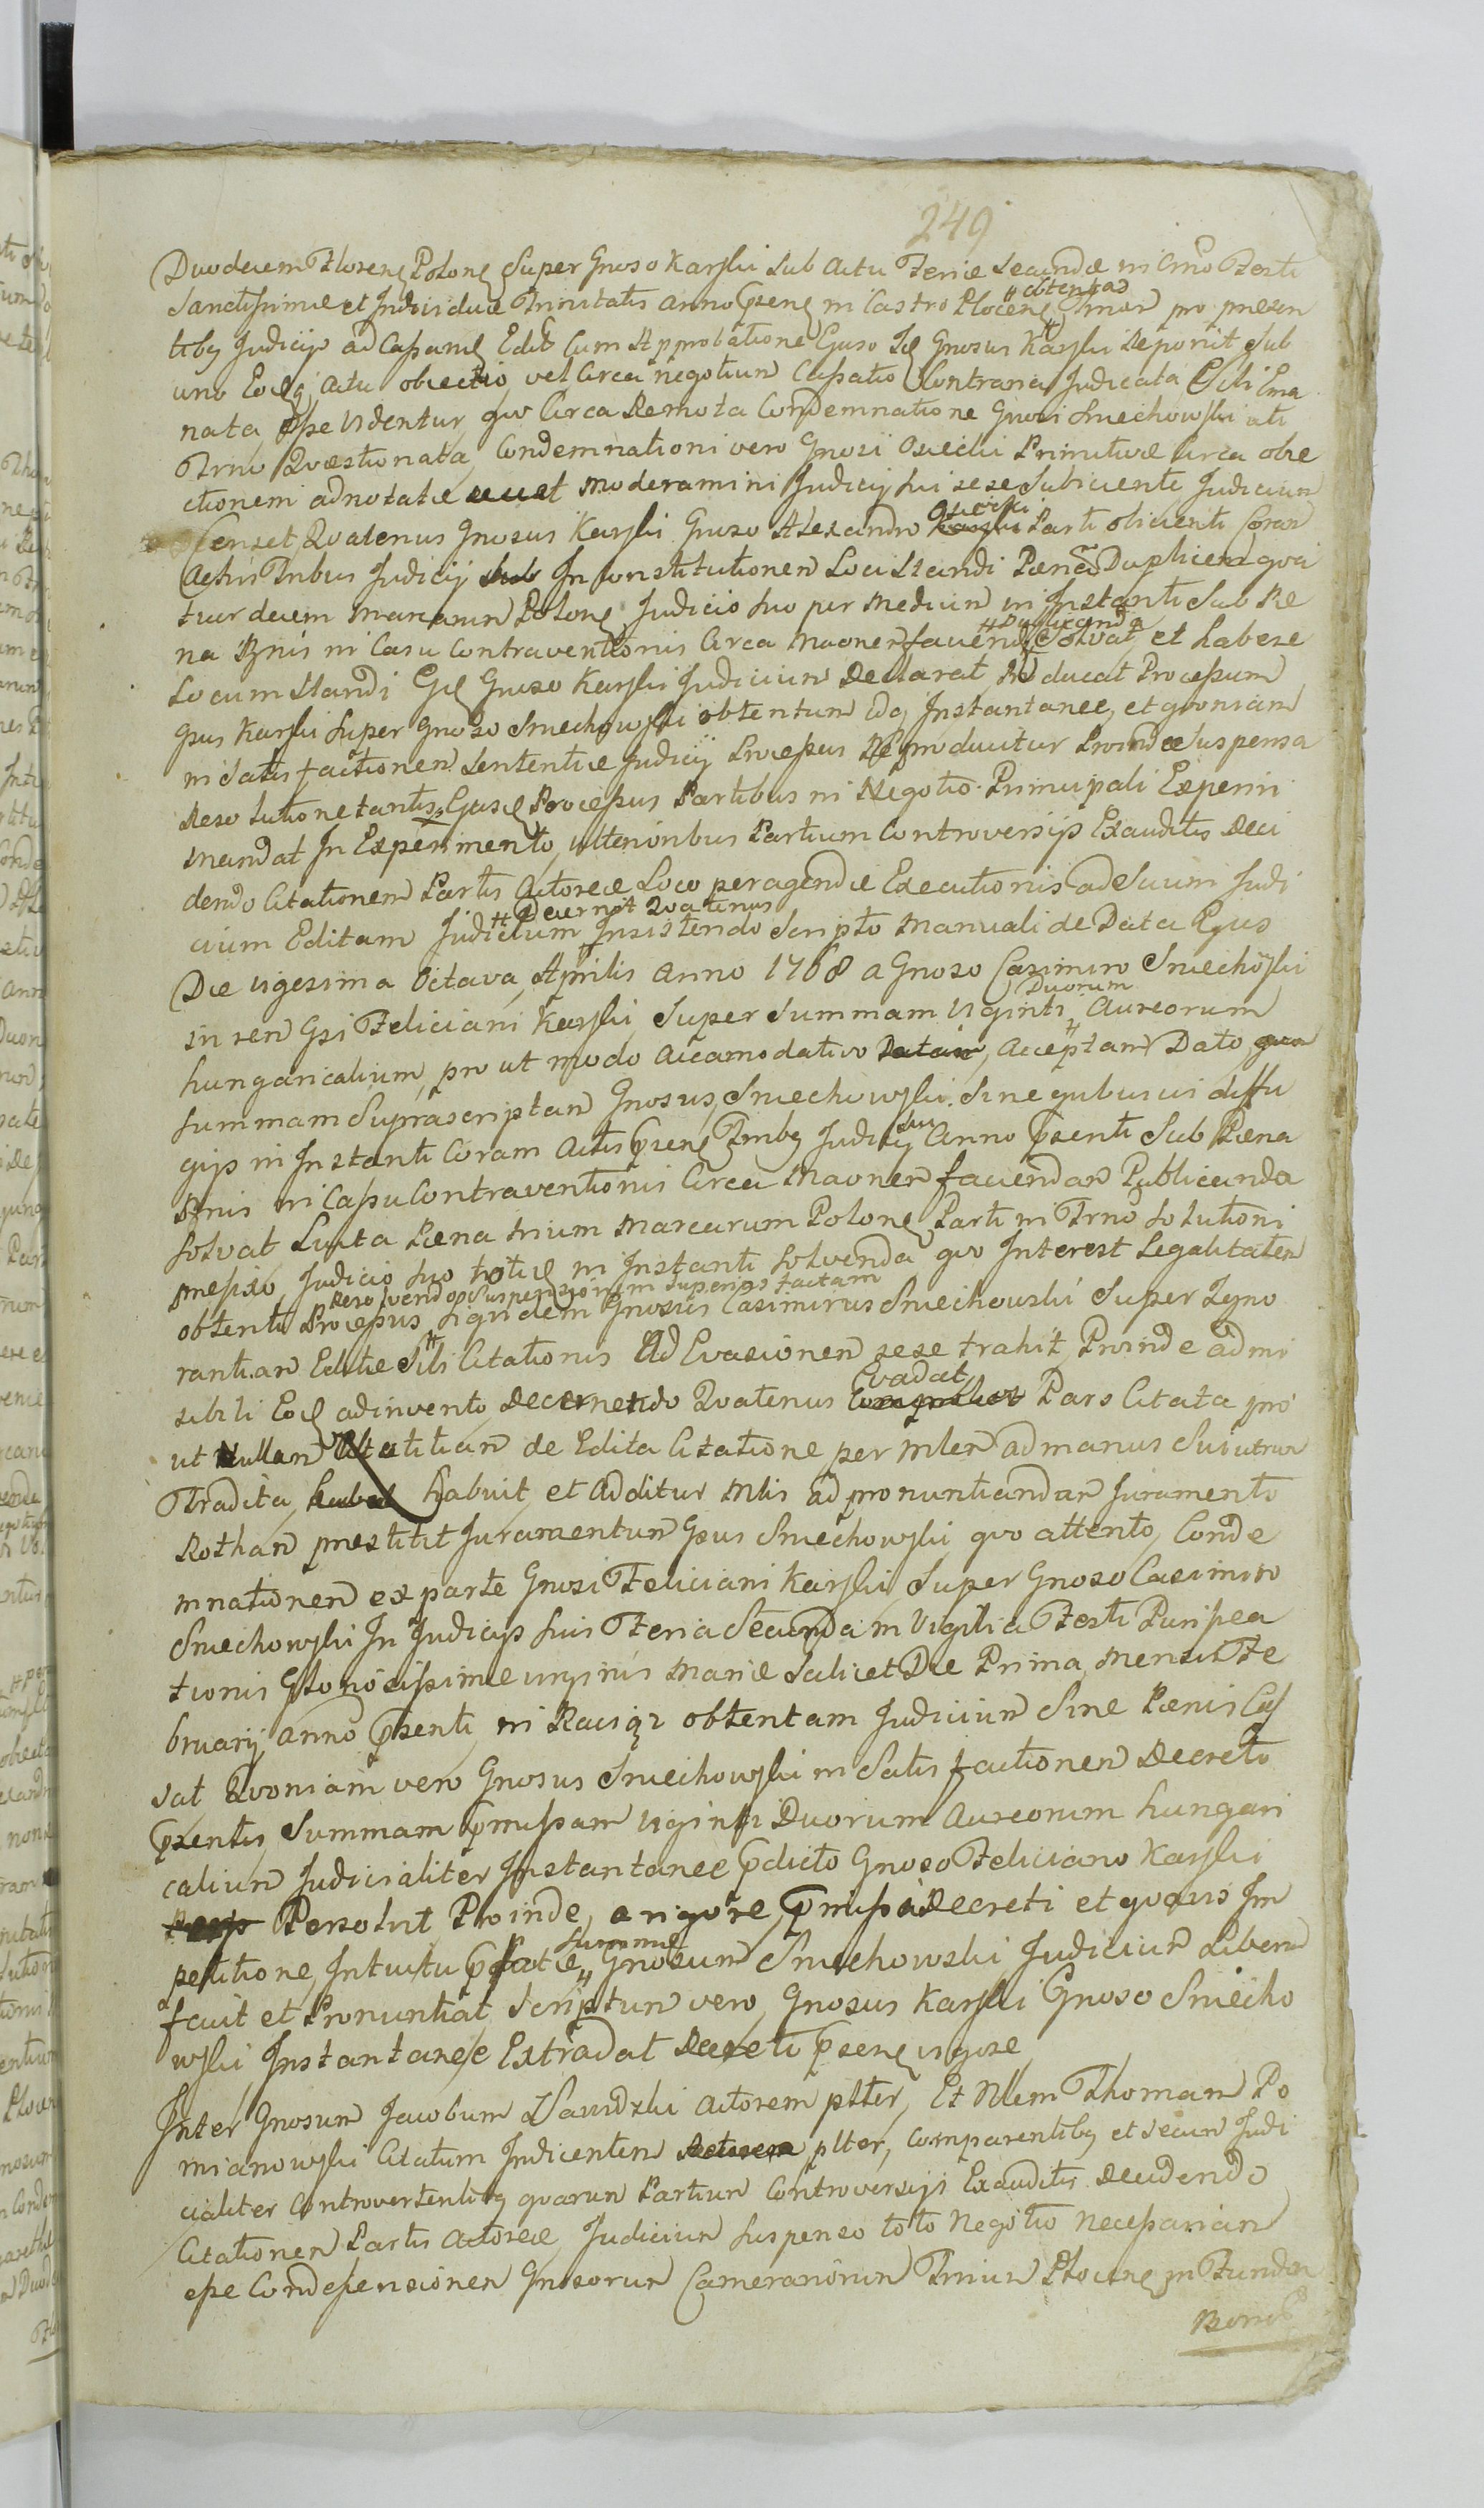 249
Duodecem Floren Polon Super Gnoso Karski sub Actu Feriæ Secundæ in Crno Festi
Sanctissimæ et Individuæ Trinitatis Anno Psen in Castro Plocen obtentas pro presen
tibg Judicijs ad Cassand Edit Cum Approbatione Gnosus Karski Reponit Sub
uno Eodq Actu obiectio vel Circa negotium Cassatio Contraria Judicata Sibi Ema
nata esse Videntur qvo Circa Remota Condemnatione Gnosi Smiechowski
Trno Qvæstionata, Condemnationi vero Gnosi Osiecki Primitivæ Circa obie
ctionem adnotatæ moderamini Judicij sui sese Subiicienti Judicium
Censet Qvatenus Gnosus Karski Gnoso Alexandro Osiecki Parti obiicienti Coram
Actis Tribus Judicij In constitutionem Loci Standi Pœnam Duplicem qva
tuor decem marcarum Polon Judicio suo per medium in Instanti Sub Pe
na Bnis in Casu Contraventionis Circa Maonem faciend Publicanda Solvat, et habere
Locum Standi Gnoso Karski Judicium Declarat, Reducat Processum
Gsus Karski super Gnoso Smiechowski obtentum idq Instantanee, et qvoniam
in Satisfactionem Sententiæ Judicij Processus Reproducitur Proindæ Suspensa
Resolutione tantis Processus Partibus in Negotio Principali Experiri
mandat In Experimento, ulterioribus Partium Controversijs Exauditis Deci
dendo Citationem Partis Actoreæ Loco peragendæ Executionis ad Suum Judi
cium Editam Judicium Decernit Qvatenus Insistendo Scripto Manuali de Data Ejus
Die Vigesima Octava Aprilis Anno 1768 a Gnoso Casimiro Smiechoski
in rem Gsi Feliciani Karski Super Summam Viginti Duorum Aureorum
hungaricalium, pro ut modo Accamodativo Acceptam Dato
summam Suprascriptam Gnosus Smiechowski Sine qvibusvis diffu
gijs in Instanti Coram Actis Psen Trnibg Judicij sui Anno Psenti Sub Pœna
Bnis in Cassu Contraventionis Circa Maonem faciendam Publicanda
solvat Luita Pœna trium Marcarum Polon Parti in Trno Solutioni
Judicio suo in Instanti Solvenda qvo Interest Legalitatem
obtenti Processus Resolvendo Suspensionem Superius factam siqvidem Gnosus Casimirus Smiechowski Super Igno
rantiam Editæ Sibi Citationis Ad Evasionem sese trahit, Proinde admi
sibili Eod adinvento, Decernendo Qvatenus Evadat Pars Citata pro
ut Nullam Notitiam de Edita Citatione per Mlem ad manus Sui utrum
Tradita, habuit, et Additur Mlis ad pronuntiandam Juramenti
Rotham præstitit Juramentum Gsus Smiechowski, qvo attento, Conde
mnationem ex parte Gnosi Feliciani Karski Super Gnoso Casimiro
Smiechowski In Judicijs sui Feria Secunda in Vigilia Festi Purifica
tionis Gloriosissimæ Virginis Mariæ Scilicet Die Prima Mensis Fe
bruarij Anno Psenti in Raciąz obtentam Judicium Sine Pœnis Cas
sat Qvoniam vero Gnosus Smiechowski in Satisfactionem Decreti
Psentis, Summam Pmissam Viginti Duorum Aureorum hungari
calium Judicialiter Instantanee Pdicto Gnoso Feliciano Karski
Persolvit Proinde, a rigore Pmissi Decreti et qvavis Im
petitione, Intuitu Pfatæ Summæ Gnosum Smiechowski Judicium Liberum
facit et Pronuntiat, Scriptum vero, Gnosus Karski Gnoso Smiecho
wski Instantanee Extradat Decreti Psen vigore,
Inter Gnosum Jacobum Actorem plter, Et Nlem Thomam Po
mianowski Citatum Indicentem plter, Comparentibg et Secum Judi
cialiter Controvertentibg qvarum Partium Controversijs Exauditis Decidendo
Citationem Partis Actoreæ, Judicium suspenso toto Negotio Necessariam
esse Condescensionem Gnosorum Camerariorum Trrium Plocen in Fundum
Bonor